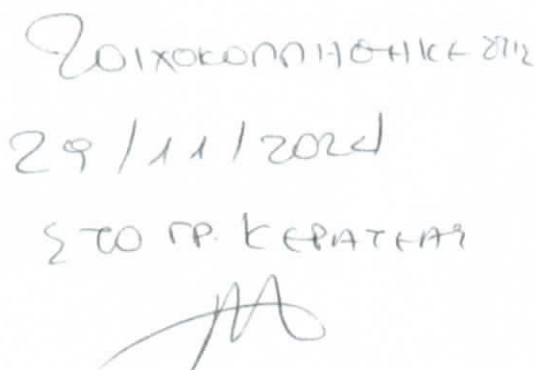 Τοιχοκολλήθηκε στις
29/11/2024
ΣΤΟ ΓΡ. ΚΕΡΑΤΕΑΣ